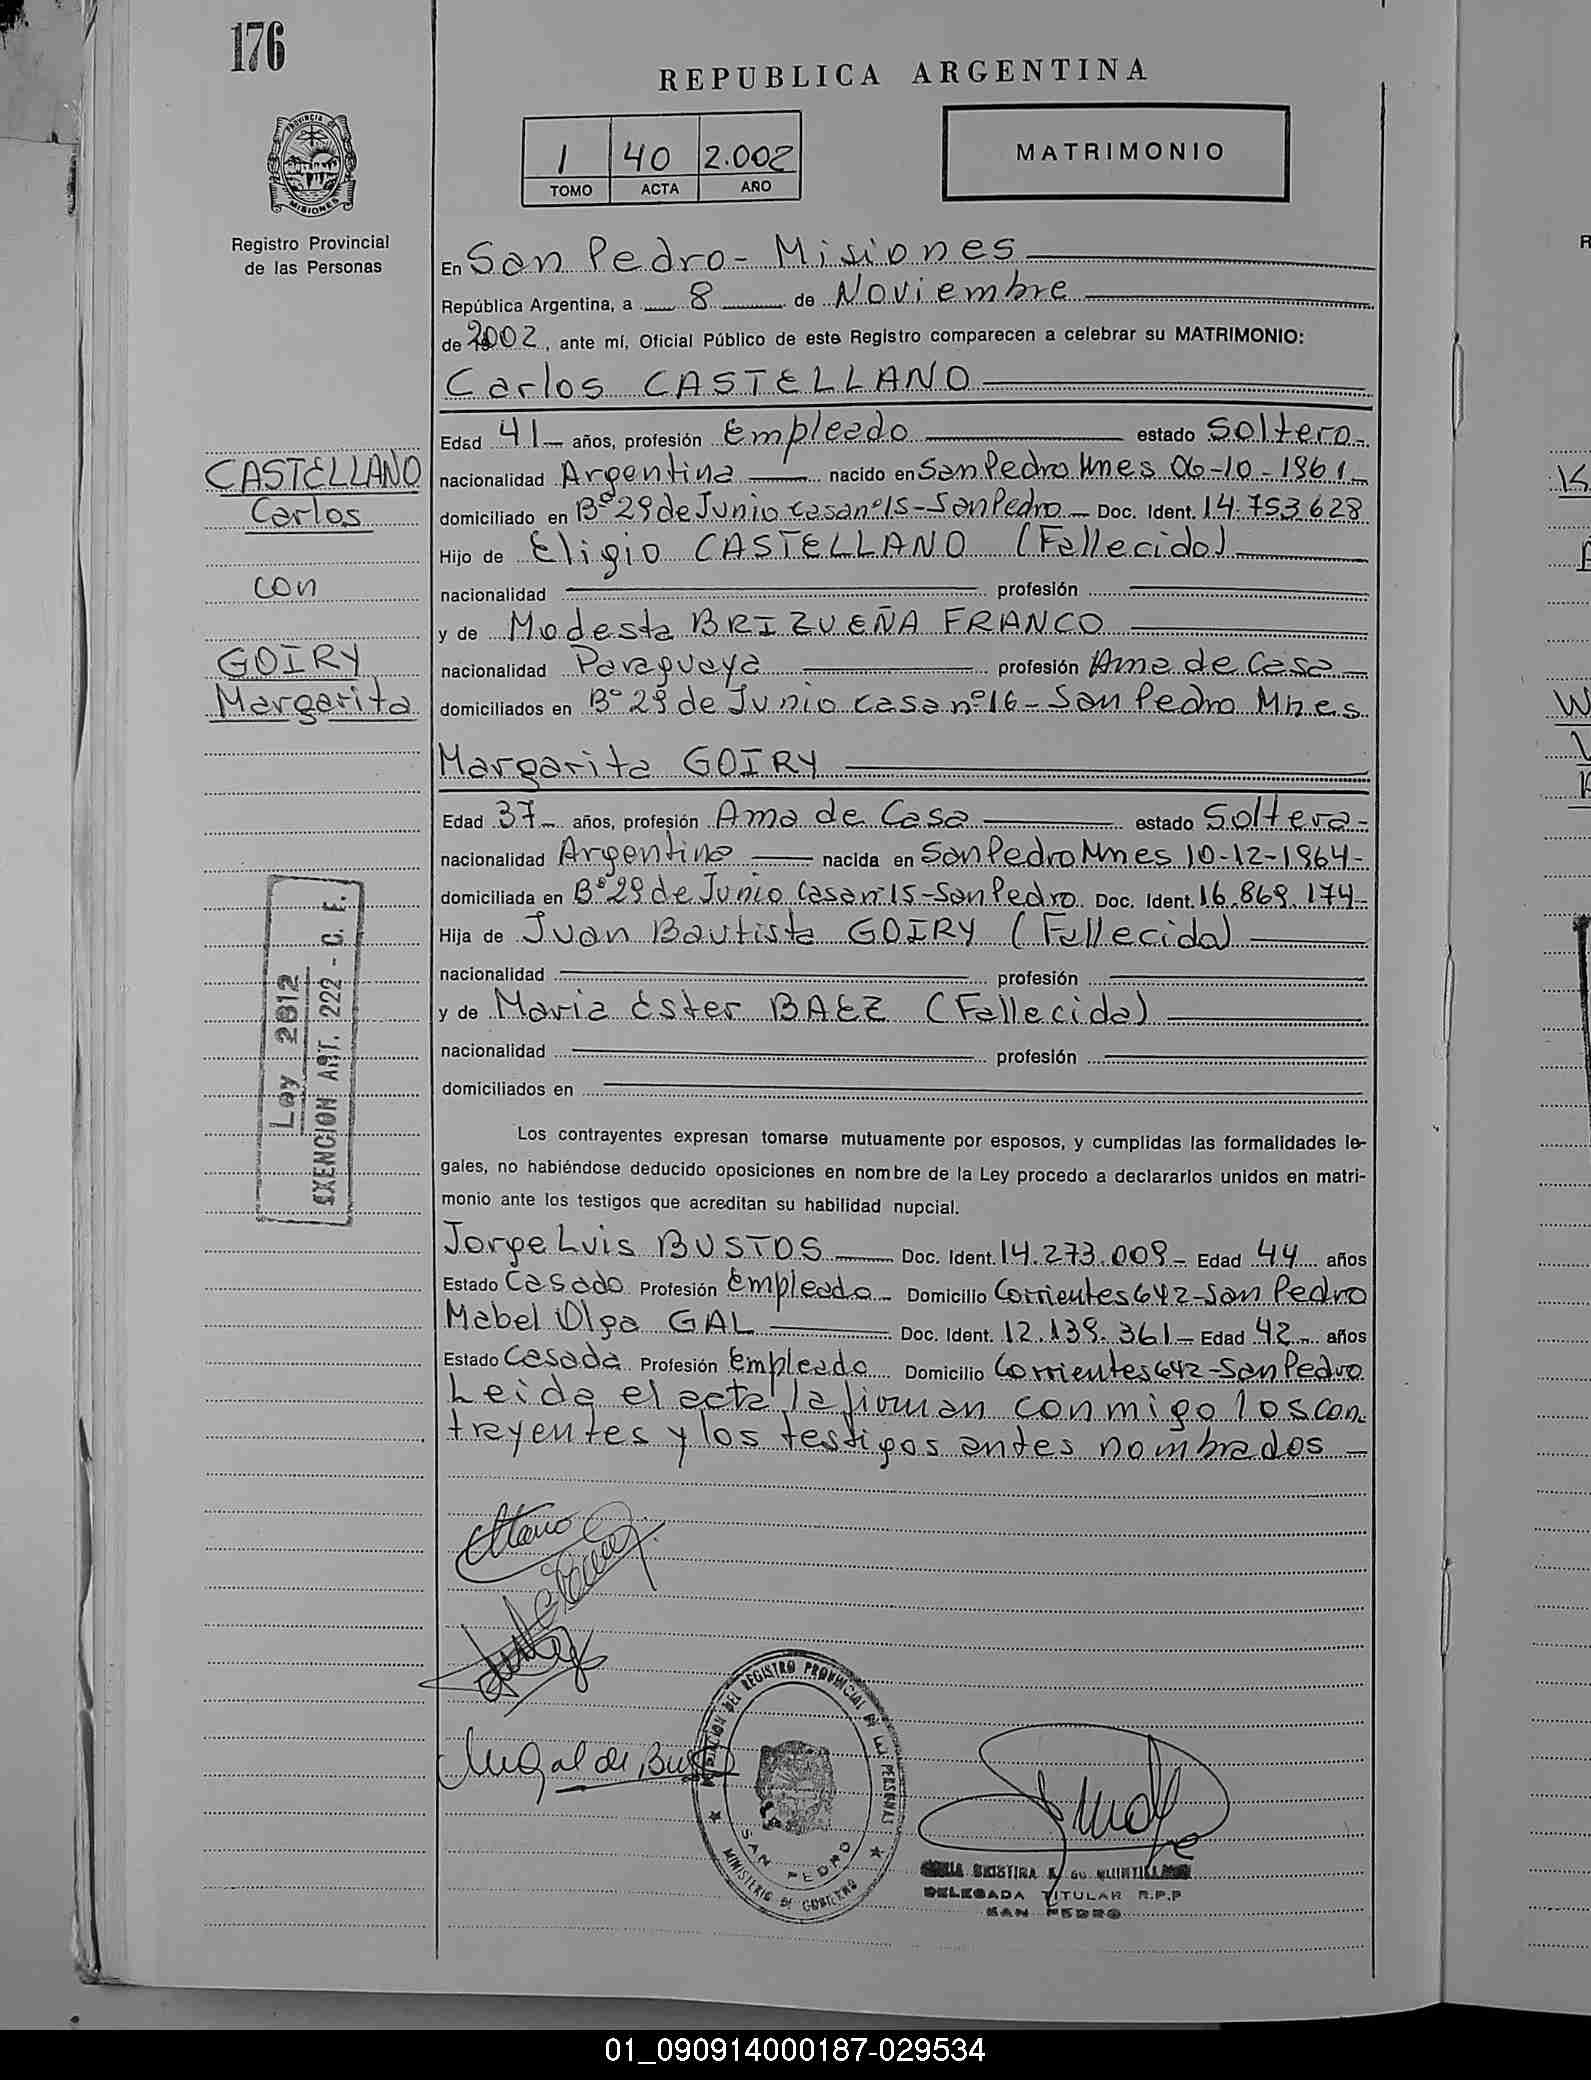 176
REPUBLICA ARGENTINA
1 40 2.002
TOMO ACTA AÑO
MATRIMONIO
PROVINCIA DE MISIONES
Registro Provincial
de las Personas
En San Pedro - Misiones
República Argentina, a 8 de Noviembre
de 2002, ante mí, Oficial Público de este Registro comparecen a celebrar su MATRIMONIO:
Carlos CASTELLANO
Edad 41 años, profesión Empleado estado Soltero
CASTELLANO
Carlos
con
GOIRY
Margarita
nacionalidad Argentina nacido en San Pedro Mnes 06-10-1961
domiciliado en Bº 29 de Junio casa nº 15 - San Pedro Doc. Ident. 14.753.628
Hijo de Eligio CASTELLANO (Fallecido)
nacionalidad profesión
y de Modesta BRIZUEÑA FRANCO
nacionalidad Paraguaya profesión Ama de Casa
domiciliados en Bº 29 de Junio casa nº 16 - San Pedro Mnes.
Margarita GOIRY
Edad 37 años, profesión Ama de Casa estado Soltera
nacionalidad Argentina nacida en San Pedro Mnes 10-12-1964
domiciliada en Bº 29 de Junio casa nº 15 - San Pedro Doc. Ident. 16.869.174
Hija de Juan Bautista GOIRY (Fallecido)
nacionalidad profesión
y de Maria Ester BAEZ (Fallecida)
nacionalidad profesión
domiciliados en
Ley 2812
EXENCION ART. 222 - C. F.
Los contrayentes expresan tomarse mutuamente por esposos, y cumplidas las formalidades le-
gales, no habiéndose deducido oposiciones en nombre de la Ley procedo a declararlos unidos en matri-
monio ante los testigos que acreditan su habilidad nupcial.
Jorge Luis BUSTOS Doc. Ident. 14.273.009 Edad 44 años
Estado Casado Profesión Empleado Domicilio Corrientes 642 - San Pedro
Mabel Olga GAL Doc. Ident. 12.139.361 Edad 42 años
Estado Casada Profesión Empleado Domicilio Corrientes 642 - San Pedro
Leida el acta la firman conmigo los con-
trayentes y los testigos antes nombrados
DEL REGISTRO PROVINCIAL DE LAS PERSONAS
SAN PEDRO
MINISTERIO DE GOBIERNO
DELEGADA TITULAR R.P.P
SAN PEDRO
01_090914000187-029534